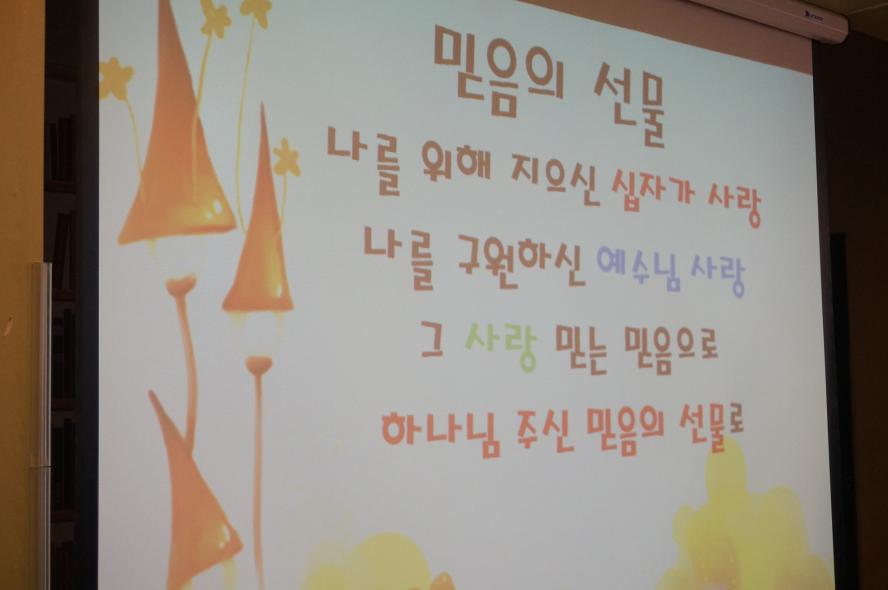 믿음의 선물
나를 위해 지으신 십자가 사랑
나를 구원하신 예수님 사랑
그 사랑 믿는 믿음으로
하나님 주신 믿음의 선물로